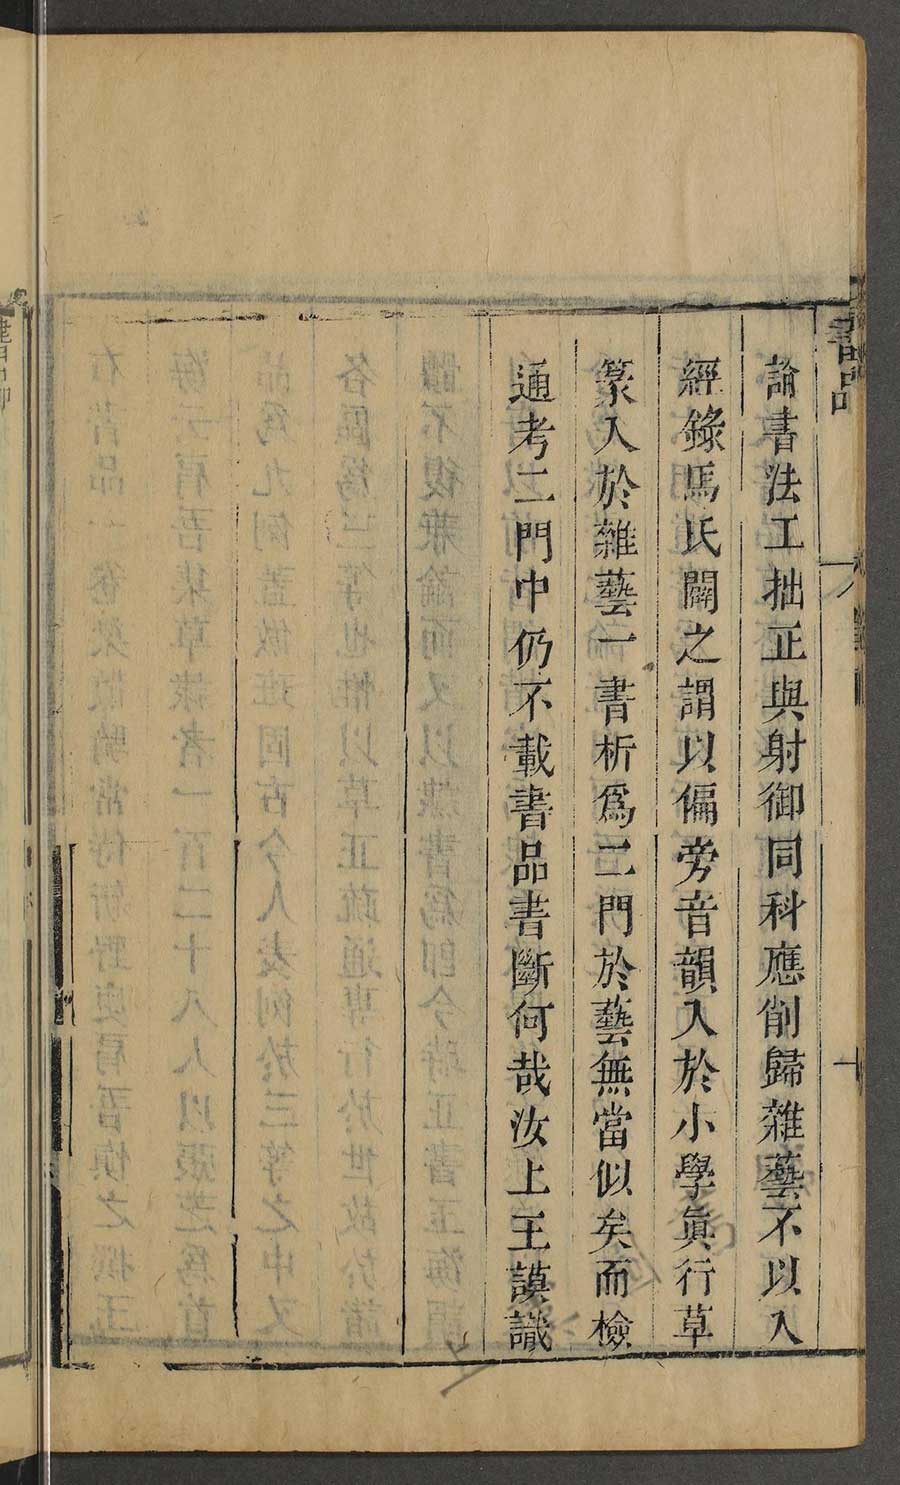 書品
論書法工拙正與射御同科應削歸雜藝不以入
經錄馬氏闢之謂以偏旁音韻入於小學眞行草
篆入於雜藝一書析爲二門於藝無當似矣而檢
通考二門中仍不載書品書斷何哉汝上王謨識